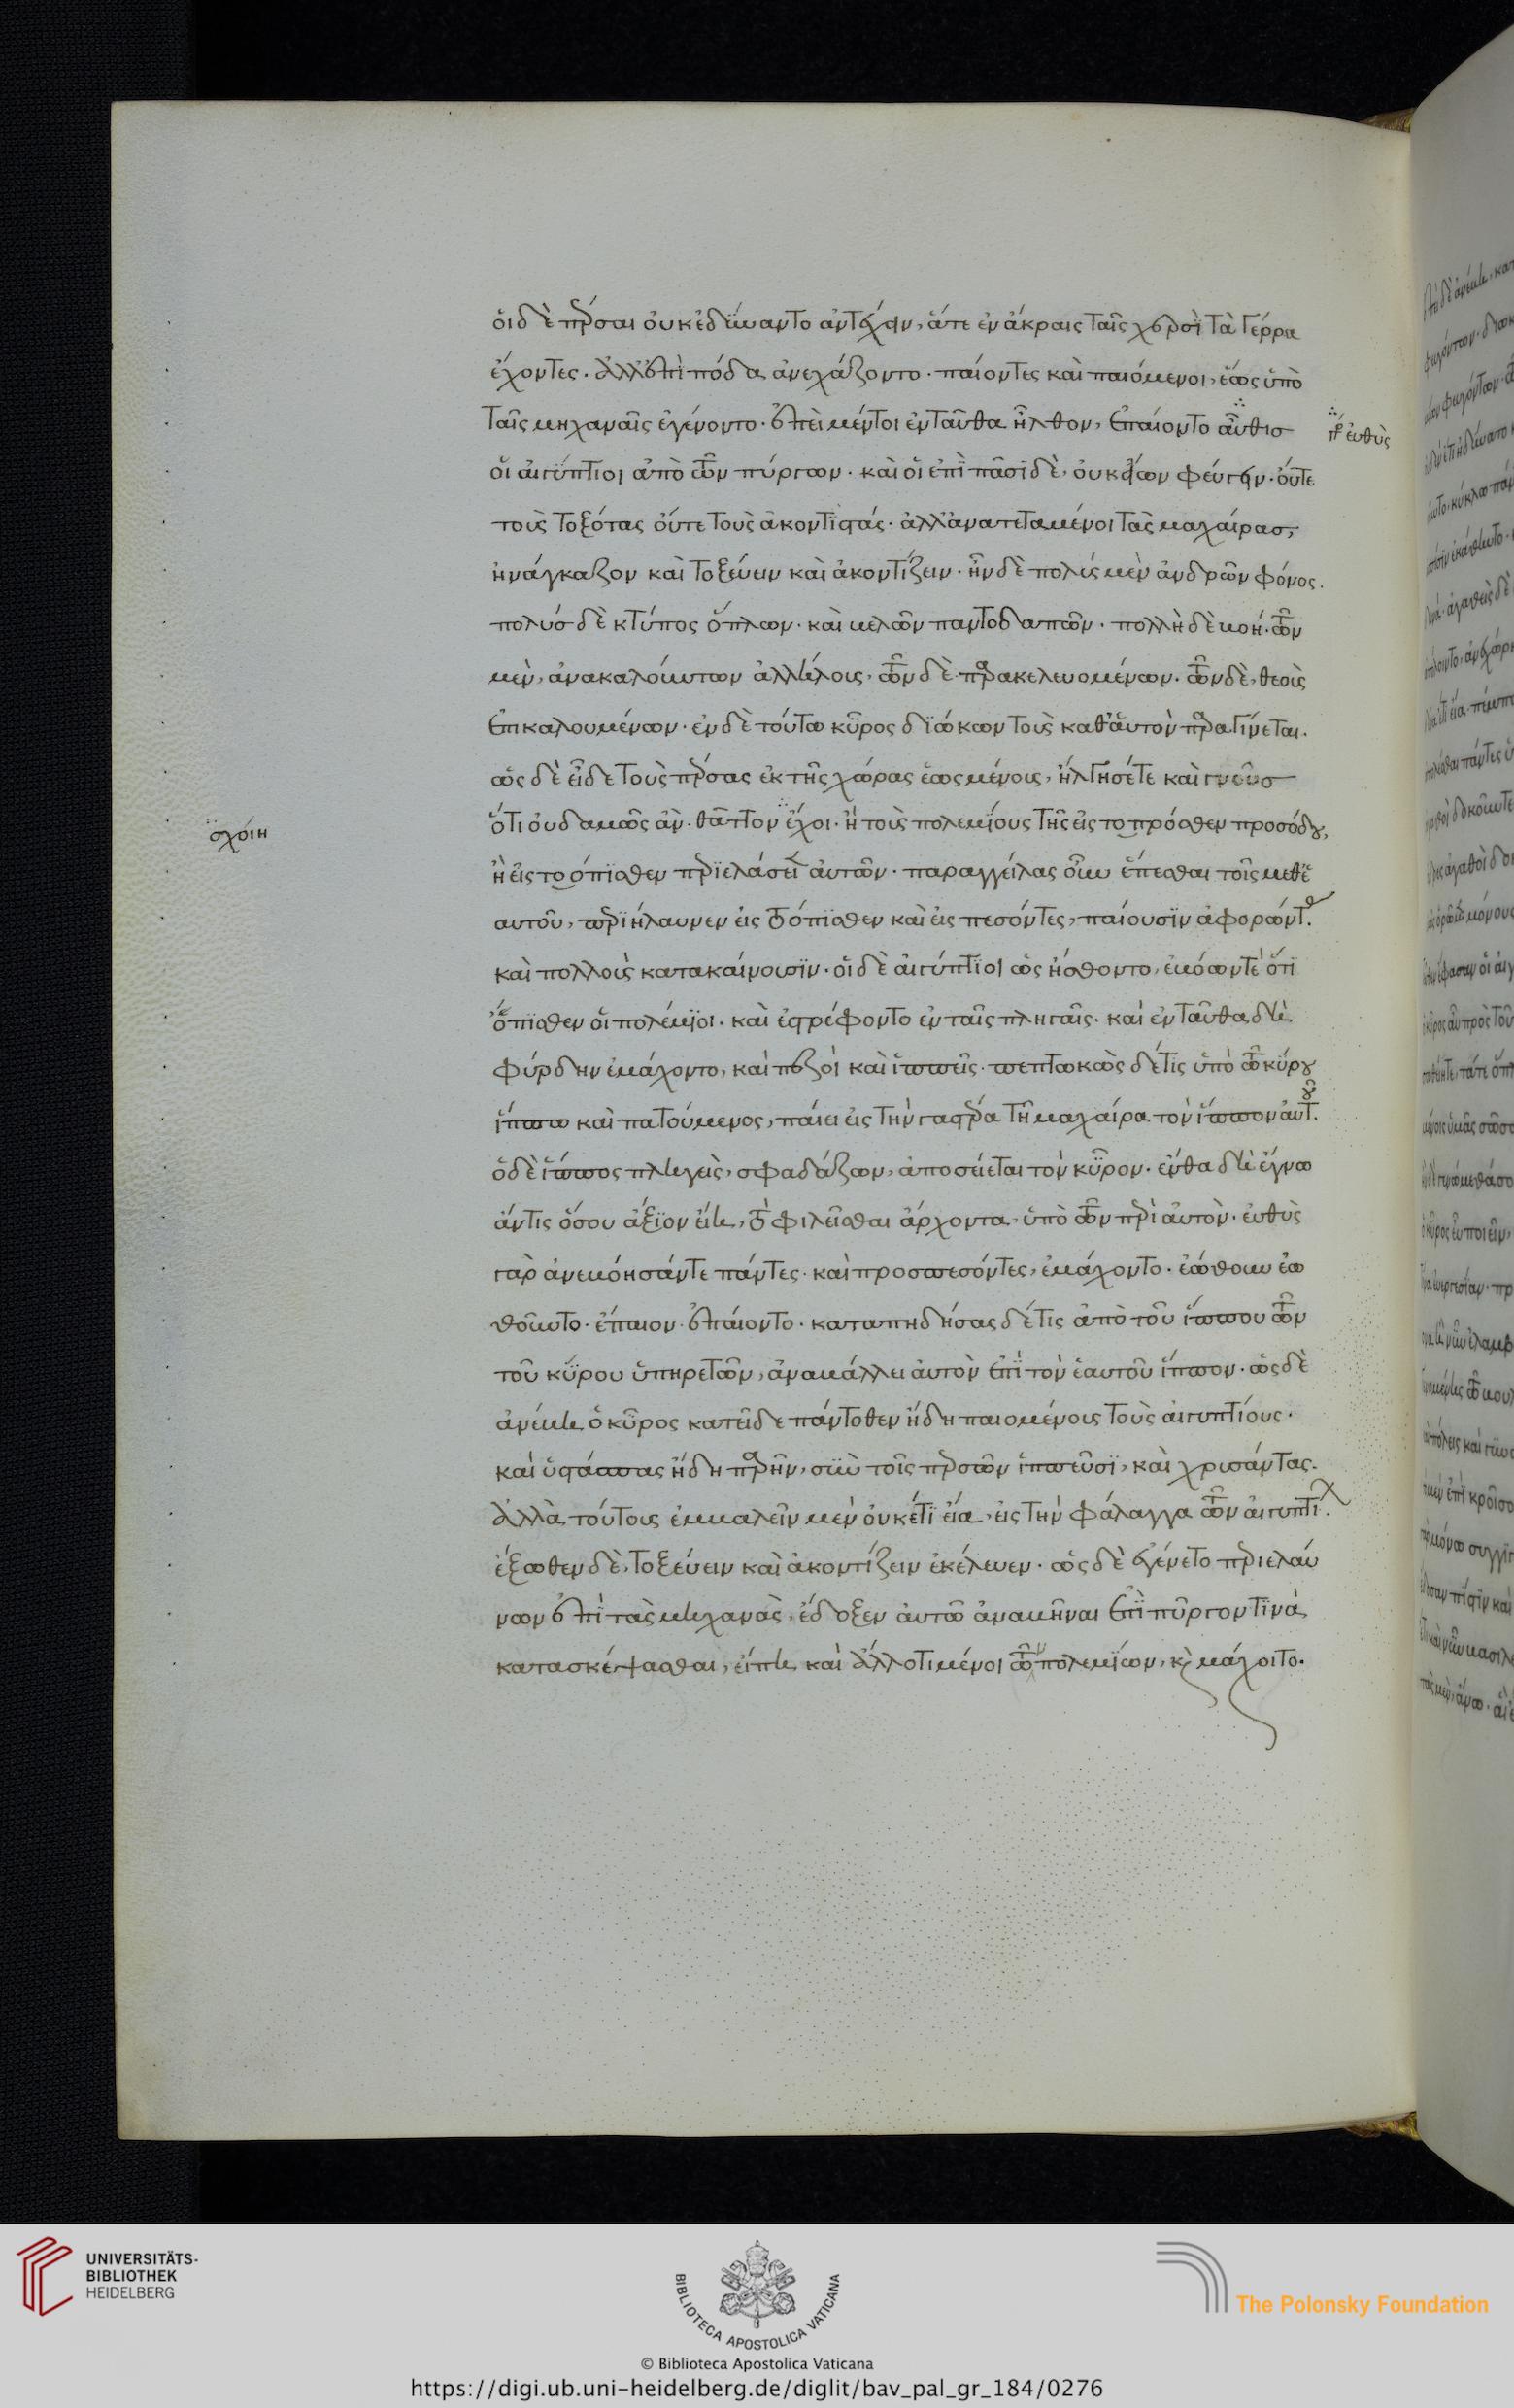 οἱ δὲ πέρσαι οὐκ ἐδύναντο ἀντέχειν, ἅτε ἐν ἄκραις ταῖς χερσὶ τὰ γέρρα
ἔχοντες. ἀλλ᾽ ἐπὶ πόδα ἀνεχάζοντο. παίοντες καὶ παιόμενοι, ἕως ὑπὸ
ταῖς μηχαναῖς ἐγένοντο. ἐπεὶ μέντοι ἐνταῦθα ἦλθον, ἐπαίοντο αὖθισ
γρ εὐθὺς
οἱ αἰγύπτιοι ἀπὸ τῶν πύργων. καὶ οἱ ἐπὶ πᾶσι δὲ, οὐκ εἴων φεύγειν. οὔτε
τοὺς τοξότας οὔτε τοὺς ἀκοντιστάς. ἀλλ᾽ ἀνατεταμένοι τὰς μαχαίρασ,
ἠνάγκαζον καὶ τοξεύειν καὶ ἀκοντίζειν. ἦν δὲ πολὺς μὲν ἀνδρῶν φόνος.
πολύσ δὲ κτύπος ὅπλων. καὶ βελῶν παντοδαπῶν. πολλὴ δὲ βοή. τῶν
μὲν, ἀνακαλούντων ἀλλήλους, τῶν δὲ παρακελευομένων. τῶν δὲ, θεοὺς
ἐπικαλουμένων. ἐν δὲ τούτω κῦρος διώκων τοὺς καθ᾽ αὑτὸν παραγίνεται.
ὡς δὲ εἶδε τοὺς πέρσας ἐκ τῆς χώρας ἐωσμένους, ἤλγησέ τε καὶ γνοῦσ
ὅτι οὐδαμῶς ἂν θᾶττον ἔχοι. ἢ τοὺς πολεμίους τῆς εἰς το πρόσθεν προσόδου,
σχοίη
ἢ εἰς το ὄπισθεν περιελάσει αὐτῶν. παραγγείλας οὖν ἕπεσθαι τοῖς μεθ᾽ ἑ
αυτοῦ, περιήλαυνεν εἰς τὸ ὄπισθεν καὶ εἰσπεσόντες, παίουσιν ἀφορῶντας.
καὶ πολλοὺς κατακαίνουσιν. οἱ δὲ αἰγύπτιοι ὡς ἤσθοντο, ἐβόων τὲ ὅτι
ὄπισθεν οἱ πολέμιοι. καὶ ἐστρέφοντο ἐν ταῖς πληγαῖς. καὶ ἐνταῦθα δὴ
φύρδην ἐμάχοντο, καὶ πεζοὶ καὶ ἱππεῖς. πεπτωκὼς δέ τις ὑπὸ τῶ κύρου
ἵππω καὶ πατούμενος, παίει εἰς τὴν γαστέρα τῇ μαχαίρα τὸν ἵππον αὐτοῦ.
ὁ δὲ ἵππος πληγεὶς, σφαδάζων, ἀποσείεται τὸν κῦρον. ἔνθα δὴ ἔγνω
ἄν τις ὅσου ἄξιον εἴη, τὸ φιλεῖσθαι ἄρχοντα, ὑπὸ τῶν περὶ αὐτὸν. εὐθὺς
γὰρ ἀνεβόησάν τε πάντες. καὶ προσπεσόντες, ἐμάχοντο. ἐώθουν ἐω
θοῦντο. ἔπαιον ἐπαίοντο. καταπηδήσας δέ τις ἀπὸ τοῦ ἵππου τῶν
τοῦ κύρου ὑπηρετῶν, ἀναβάλλει αὐτὸν ἐπὶ τὸν ἑαυτοῦ ἵππον. ὡς δὲ
ἀνέβη ὁ κῦρος κατεῖδε πάντοθεν ἤδη παιομένους τοὺς αἰγυπτίους.
καὶ ὑστάσπας ἤδη παρῆν, σὺν τοῖς περσῶν ἱππεῦσι, καὶ χρισάντας.
ἀλλὰ τούτους ἐμβαλεῖν μὲν οὐκέτι εἴα, εἰς τὴν φάλαγγα τῶν αἰγυπτίων.
ἔξωθεν δὲ, τοξεύειν καὶ ἀκοντίζειν ἐκέλευεν. ὡς δὲ ἐγένετο περιελαύ
νων ἐπὶ τὰς μηχανὰς, ἔδοξεν αὐτῶ ἀναβῆναι ἐπὶ πῦργον τινὰ
κατασκέψασθαι, εἴπη καὶ ἄλλο τι μένοι τῶν πολεμίων, καὶ μάχοιτο.
UNIVERSITÄTS-
BIBLIOTHEK
HEIDELBERG
BIBLIOTECA APOSTOLICA VATICANA
The Polonsky Foundation
© Biblioteca Apostolica Vaticana
https://digi.ub.uni-heidelberg.de/diglit/bav_pal_gr_184/0276